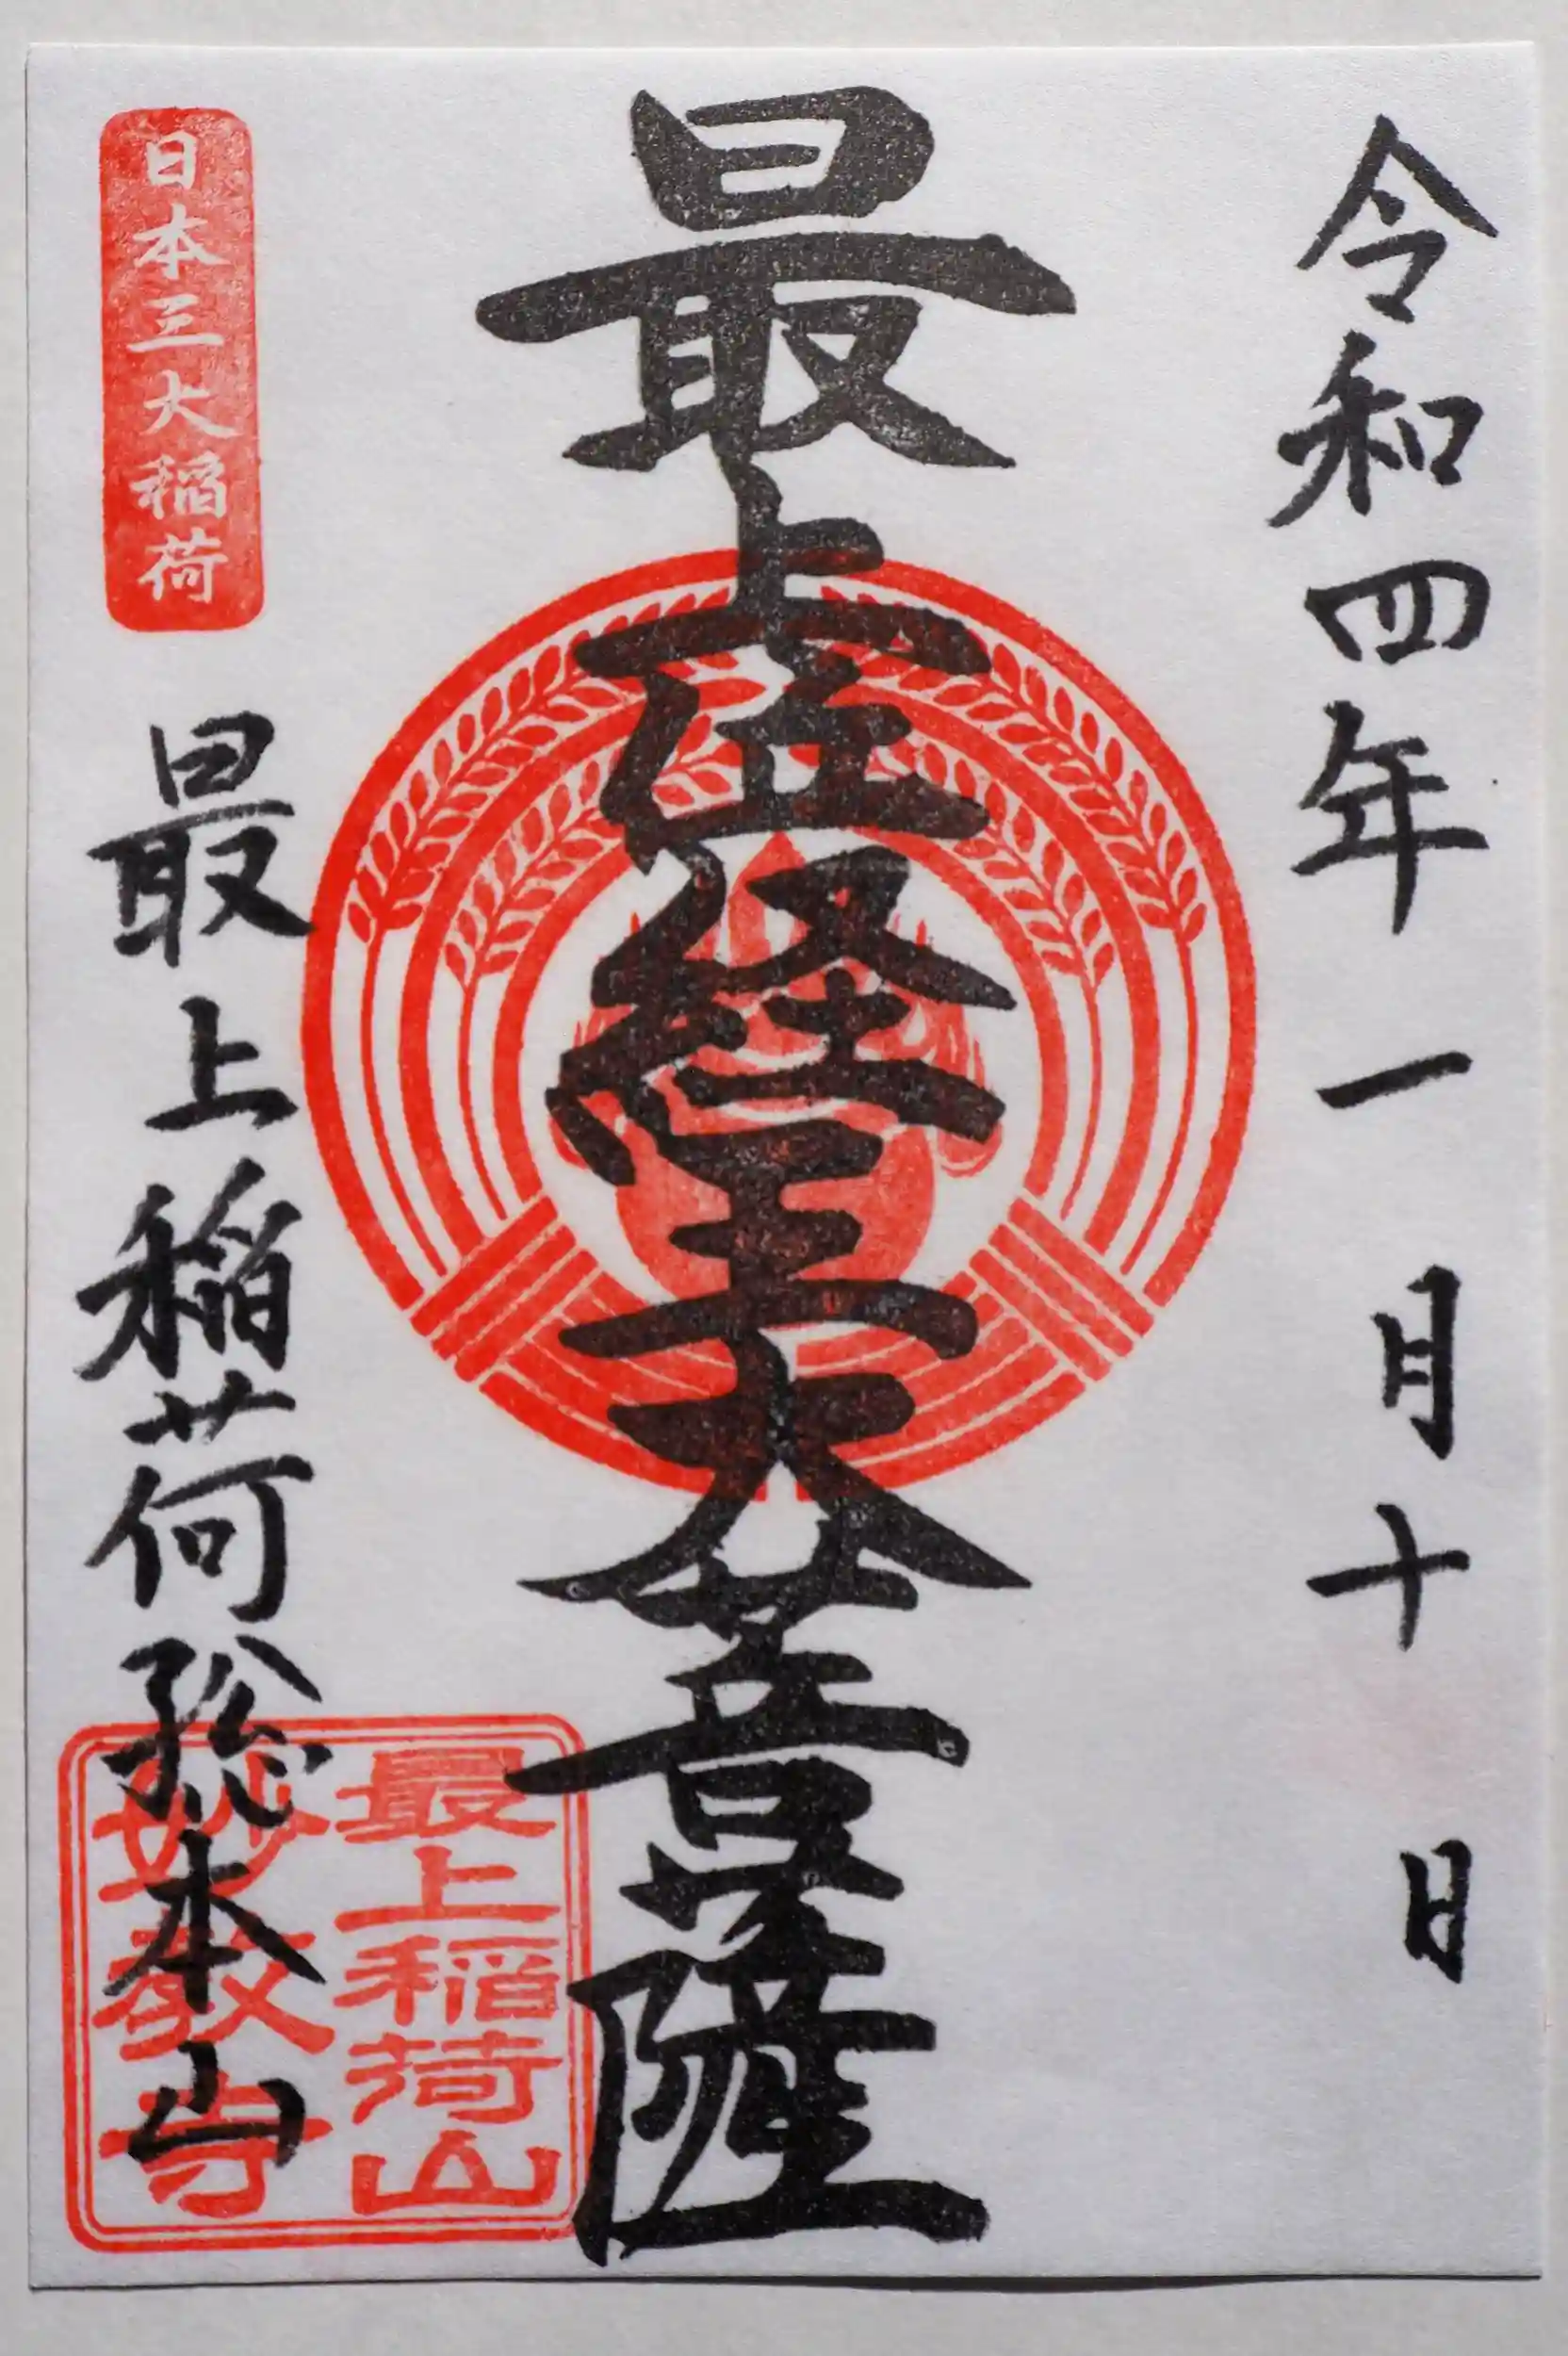 令和四年一月十日
最上位経王大菩薩
日本三大稲荷
最上稲荷総本山
最上稲荷山
妙教寺